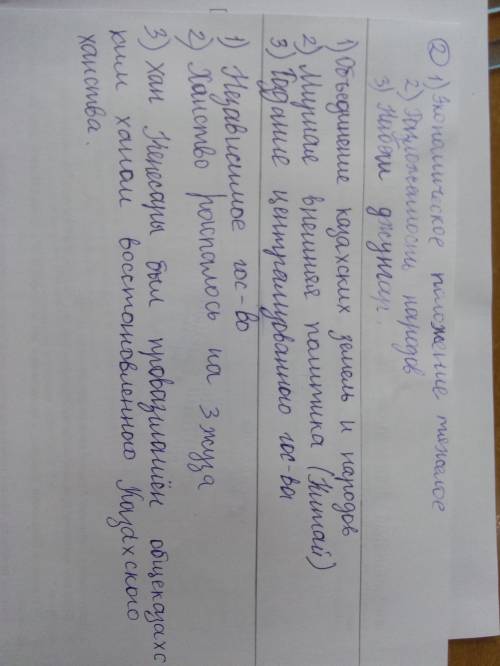 ② 1) Экономическое положение тяжелое
2) Разобщенность народов
3) Набеги джунгар.
1) Объединение казахских земель и народов
2) Мирная внешняя политика (Китай)
3) Создание централизованного гос-ва
1) Независимое гос-во
2) Ханство роспалось на 3 жуза
3) хан Кенесары был провазглашён общеказахс
ким ханом восстоновленного Казахского
ханства.